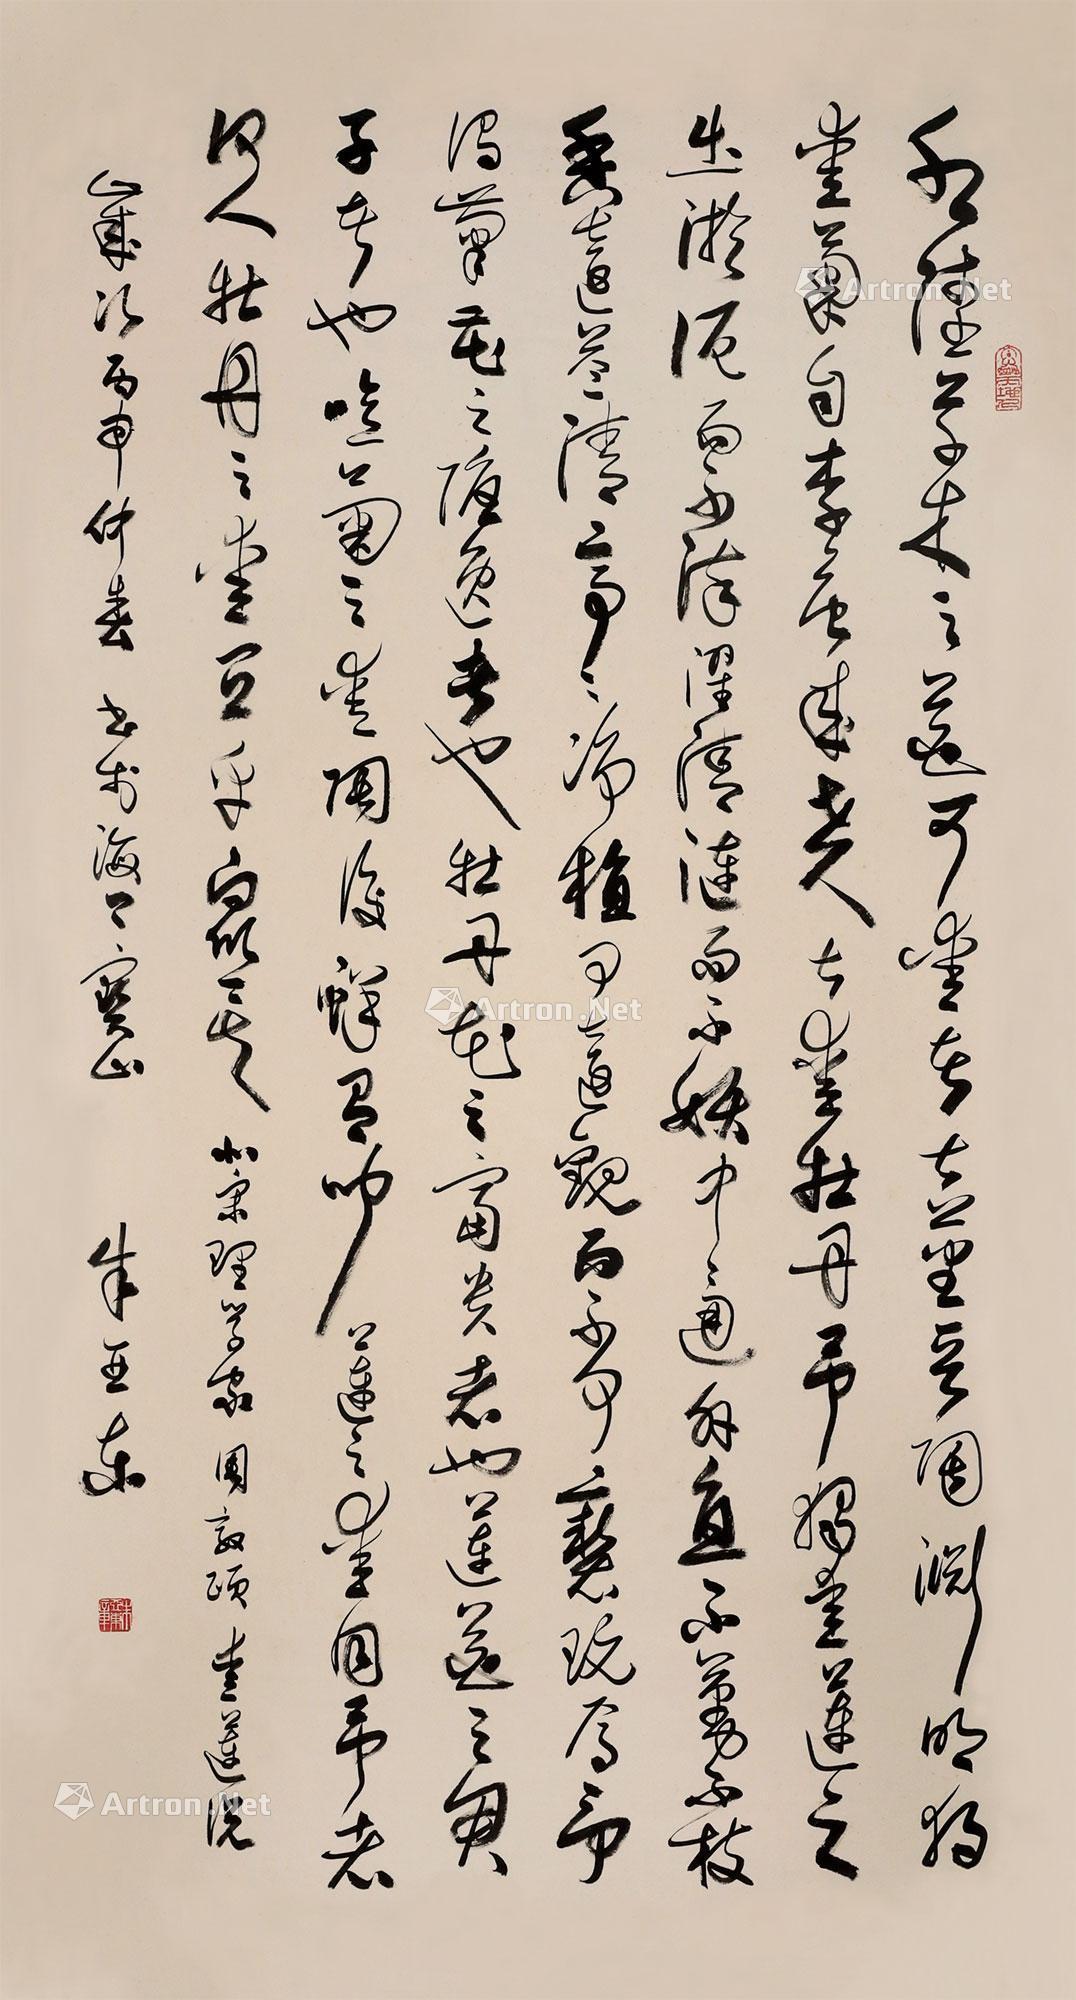 水陸草木之花可愛者甚蕃晉陶淵明獨
愛菊自李唐來世人甚愛牡丹予獨愛蓮之
出淤泥而不染濯清漣而不妖中通外直不蔓不枝
香遠益清亭亭淨植可遠觀而不可褻玩焉予
謂菊花之隱逸者也牡丹花之富貴者也蓮花之君
子者也噫菊之愛陶後鮮有聞蓮之愛同予者
何人牡丹之愛宜乎眾矣 北宋理學家周敦頤愛蓮說
歲次丙申仲春 書於海上寶山 朱亚东
Artron.Net
Artron.Net
Artron.Net